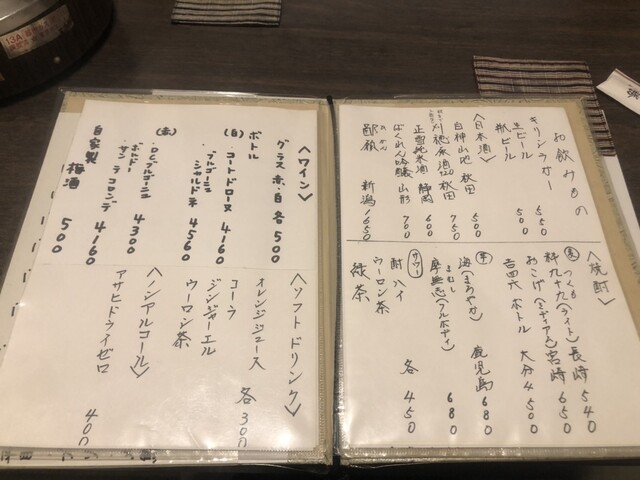 お飲みもの
キリンラガー 550
生ビール
瓶ビール 500
〈日本酒〉
白神山地 秋田 500
刈穂 秋田 750
正雪純米酒 静岡 600
ばくれん吟醸 山形 700
新潟 1650
〈焼酎〉
麦
つくも(ライト) 長崎 540
おこげ(ミディアム) 宮崎 650
吉四六 ボトル 大分 4500
芋
海(まろやか) 鹿児島 680
摩無志(フルボディ) 680
サワー
酎ハイ
ウーロン茶 各 450
緑茶
〈ワイン〉
グラス 赤・白 各 500
ボトル
(白)
・コートドローヌ 4160
・ブルゴーニュ
シャルドネ 4560
(赤)
・D.C.ブルゴーニュ
ボルドー 4300
サン テコロンデ 4160
自家製
梅酒 500
〈ソフトドリンク〉
オレンジジュース
コーラ 各 300
ジンジャーエル
ウーロン茶
〈ノンアルコール〉
アサヒドライゼロ 400
13A